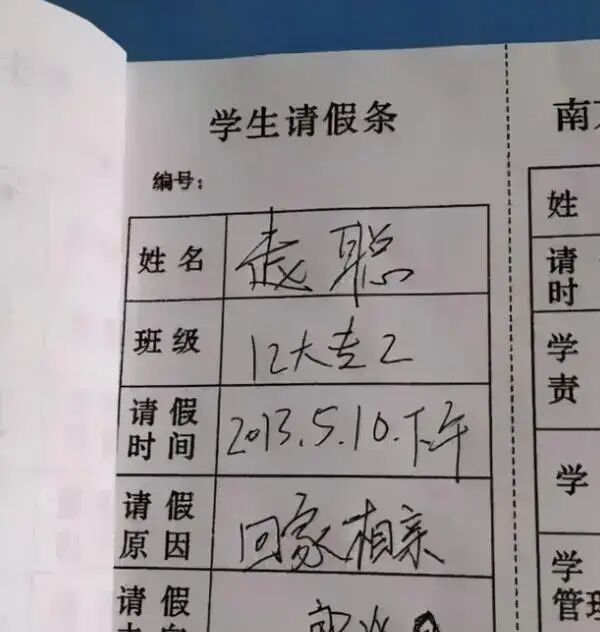 学生请假条
编号：
姓名 赵聪
班级 12大专2
请假时间 2013.5.10.下午
请假原因 回家相亲
请假
南
姓
请
时
学
责
学
学
管理